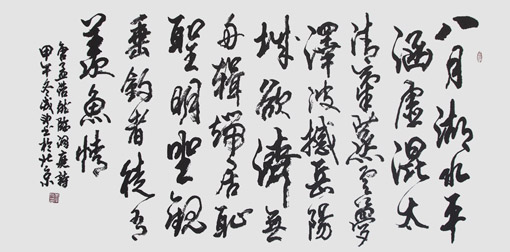 八月湖水平
涵虛混太
清氣蒸雲夢
澤波撼岳陽
城欲濟無
舟楫端居恥
聖明坐觀
垂釣者徒有
羨魚情
唐孟浩然臨洞庭詩
甲午冬於北京